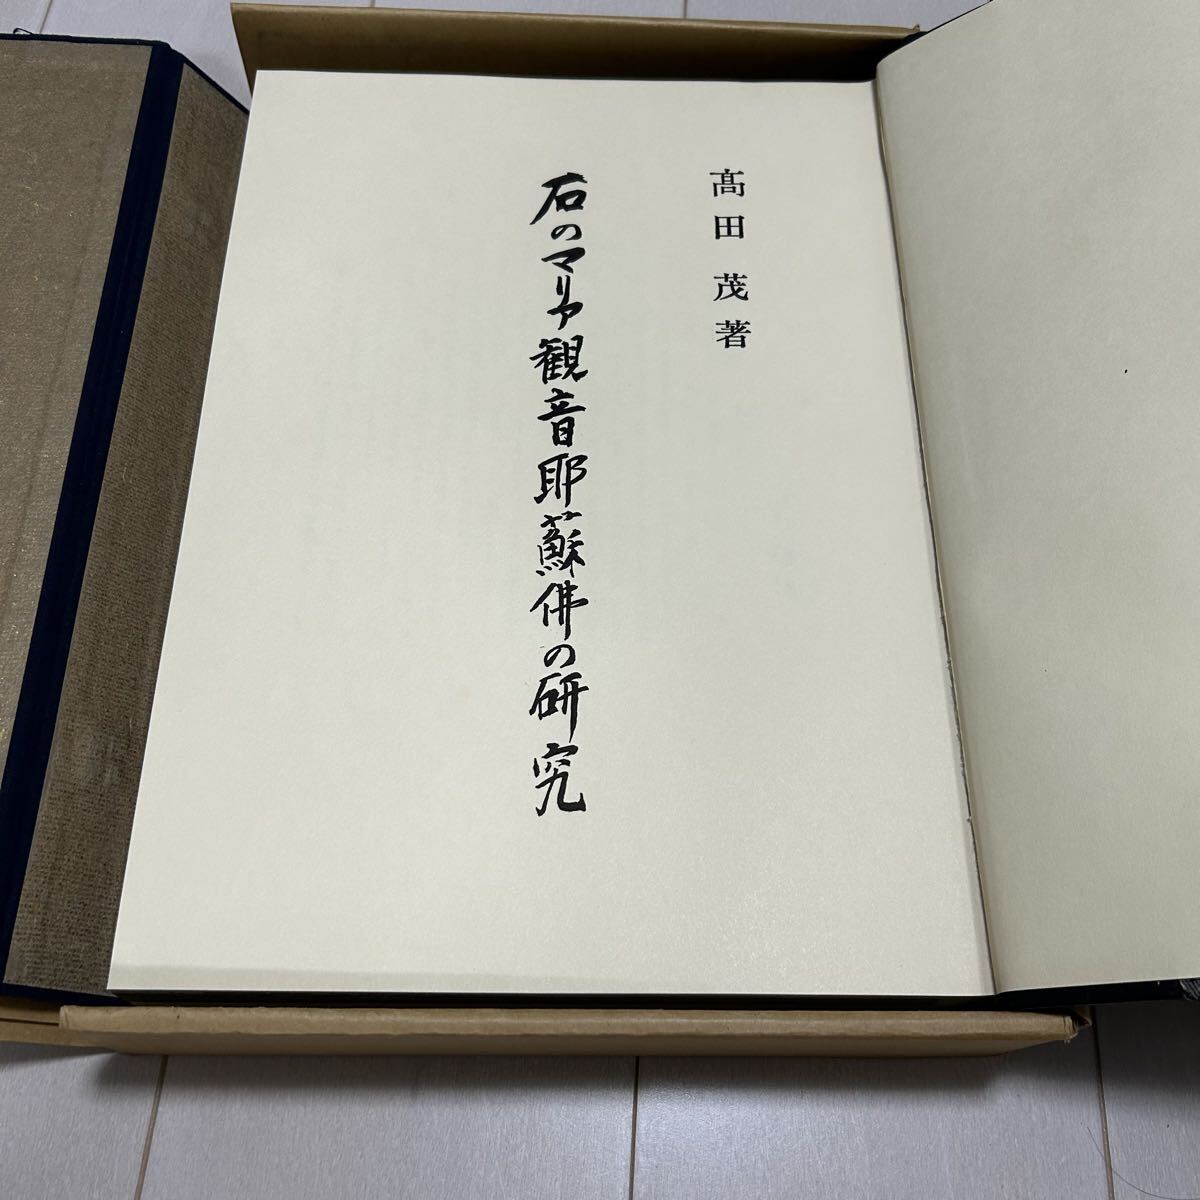 髙田茂著
石のマリヤ観音耶蘇佛の研究